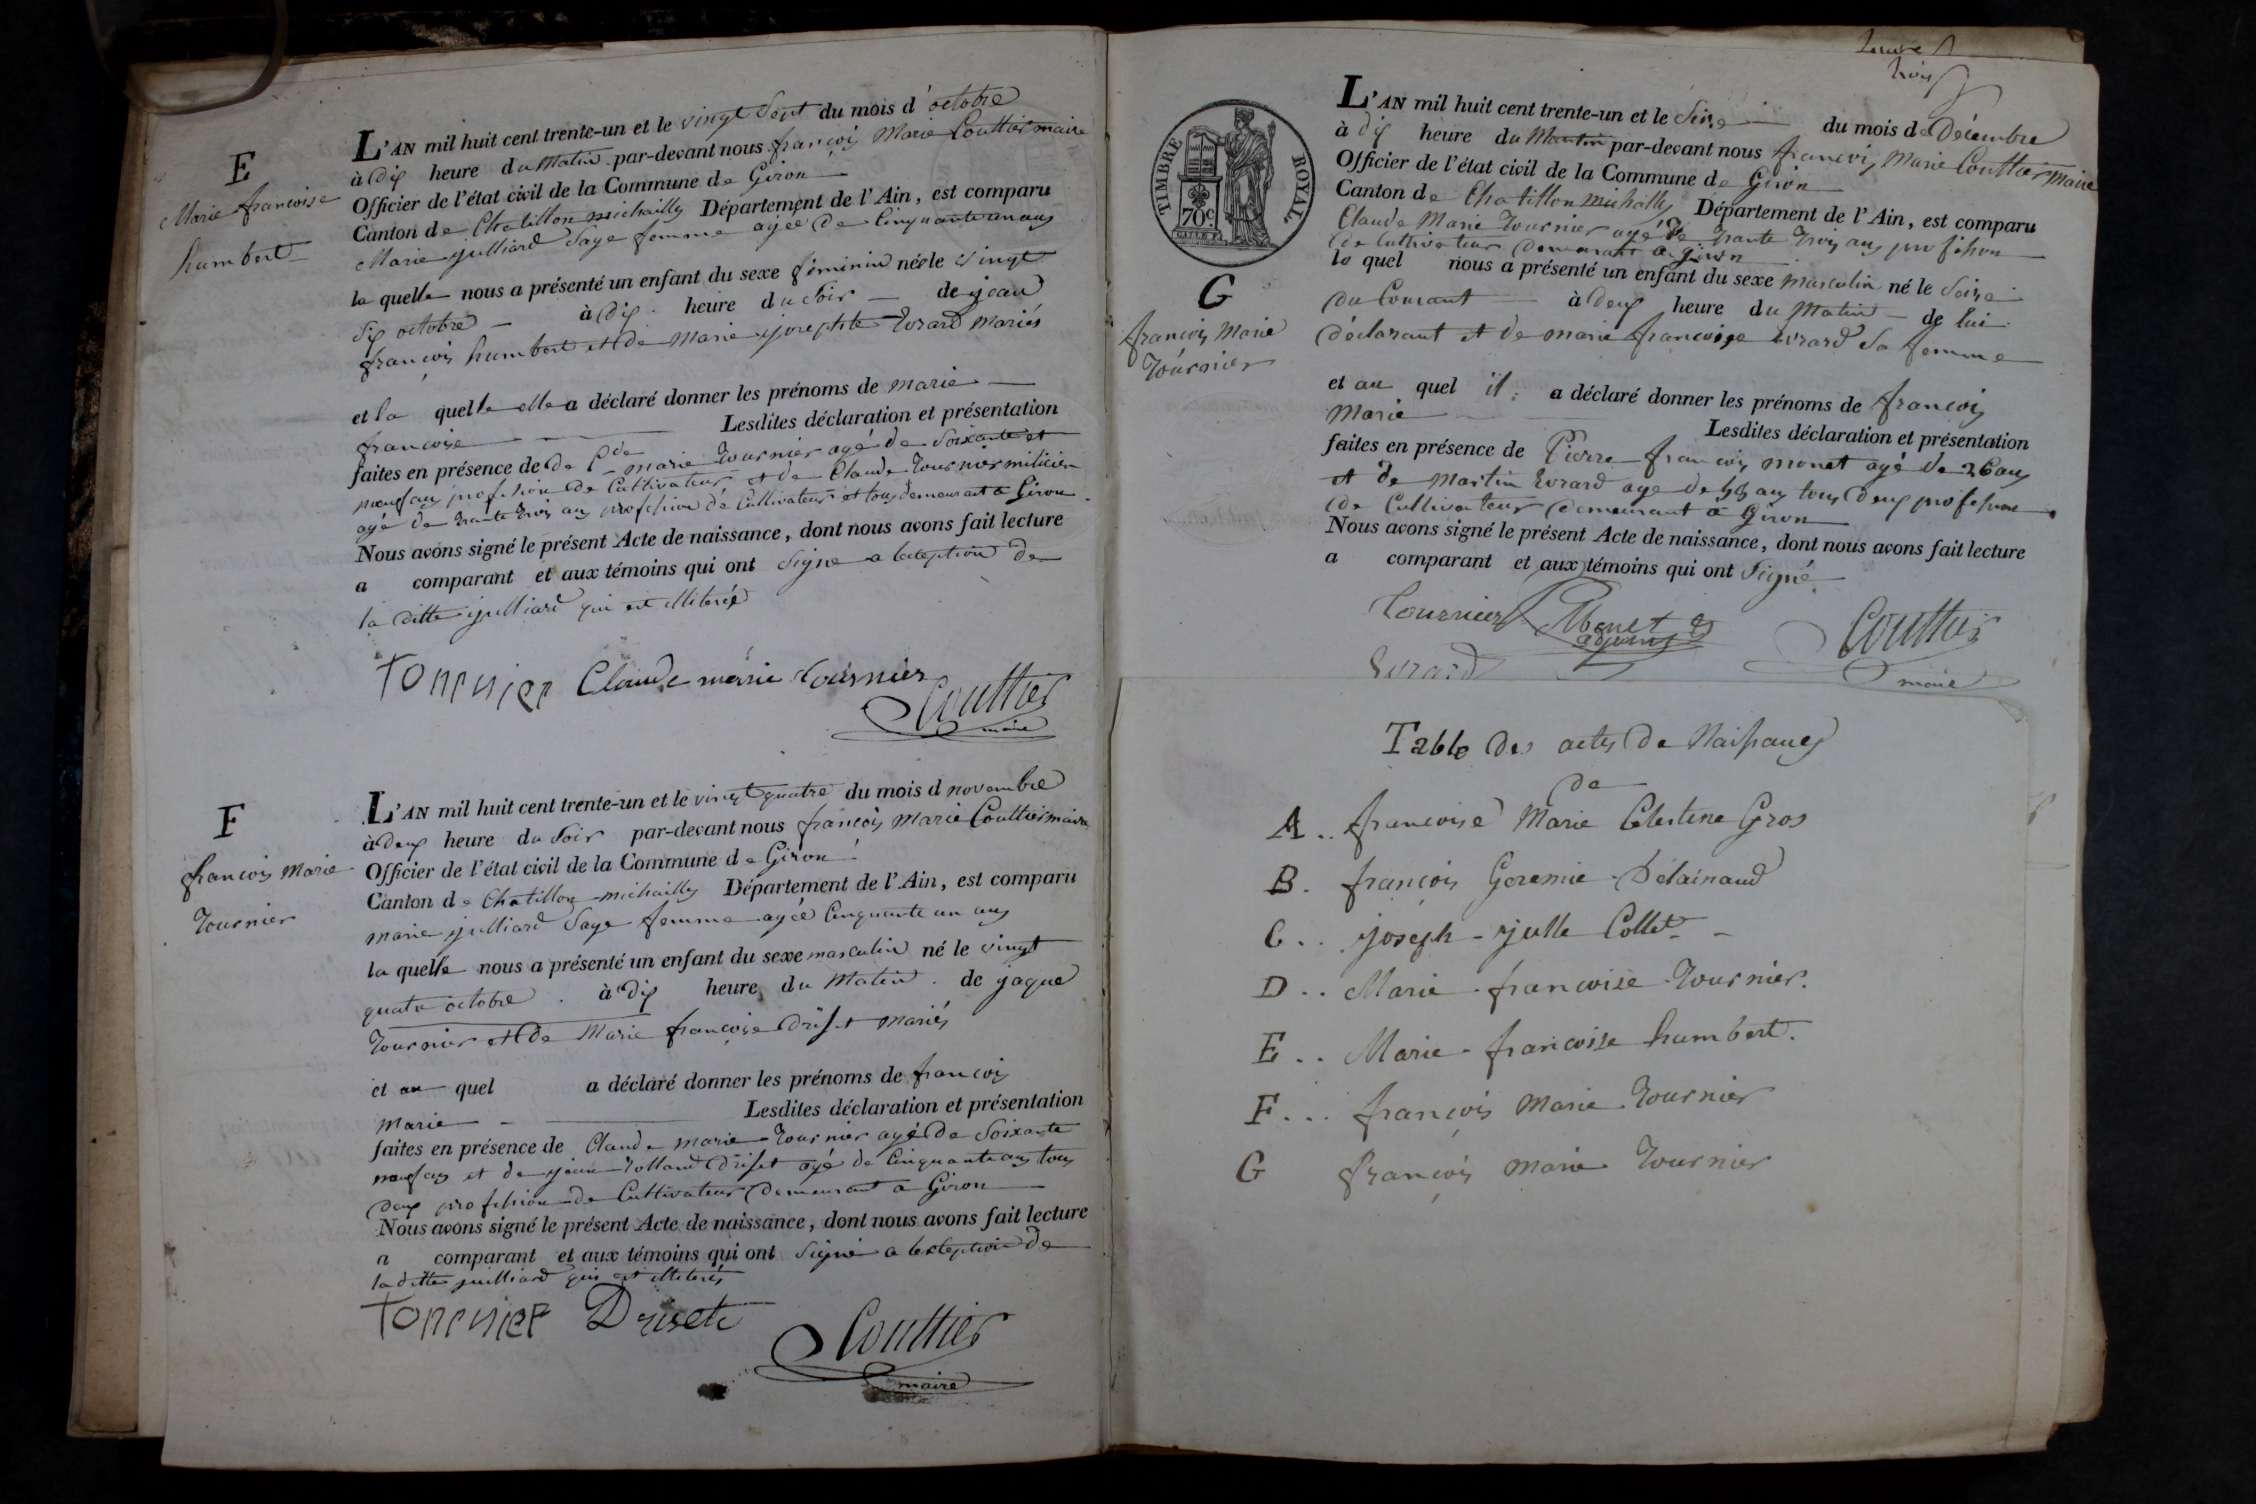 E
Marie francoise
humbert
L'AN mil huit cent trente-un et le vingt Sept du mois d'octobre
à dix heure du Matin par-devant nous françois Marie Couttier maire
Officier de l'état civil de la Commune de Giron
Canton de Chatillon michailly Département de l'Ain, est comparu
Marie julliard Sage femme agée de Cinquante un ans
la quelle nous a présenté un enfant du sexe féminin née le vingt
six octobre à dix heure du Soir de jean
françois humbert et de Marie josephte Evrard Mariés
et la quelle elle a déclaré donner les prénoms de marie
francoise Lesdites déclaration et présentation
faites en présence de de Cde marie Tournier agé de Soixante et
neuf ans profession de Cultivateur et de Claude Tournier militien
agé de trante trois ans profession de Cultivateur et tous demeurant a Giron
Nous avons signé le présent Acte de naissance, dont nous avons fait lecture
a comparant et aux témoins qui ont Signe a lexeption de
la ditte julliard qui est illiterée
Tournier Claude marie tournier
Couttier
maire
F
francois Marie
Tournier
L'AN mil huit cent trente-un et le vingt quatre du mois d novembre
à deux heure du Soir par-devant nous francois Marie Couttier maire
Officier de l'état civil de la Commune de Giron
Canton de Chatillon michailly Département de l'Ain, est comparu
marie julliard Sage femme agée Cinquante un ans
la quelle nous a présenté un enfant du sexe masculin né le vingt
quatre octobre à dix heure du Matin de jaque
Tournier et de Marie françoise Driset mariés
et au quel a déclaré donner les prénoms de francois
Marie Lesdites déclaration et présentation
faites en présence de Claude marie Tournier agé de Soixante
neuf ans et de jean Rolland Driset agé de Cinquante ans tous
deux profession de Cultivateur demeurant a Giron
Nous avons signé le présent Acte de naissance, dont nous avons fait lecture
a comparant et aux témoins qui ont Signé a lexeption de
la ditte julliard qui est illiterés
Tournier Drisete
Couttier
maire
trois
TIMBRE ROYAL
70c
G
francois Marie
Tournier
L'AN mil huit cent trente-un et le Seize du mois de Décembre
à dix heure du Mantin par-devant nous francois Marie Couttier Maire
Officier de l'état civil de la Commune de Giron
Canton de Chatillon michailly Département de l'Ain, est comparu
Claude Marie Tournier agé de trante trois ans profession
de Cultivateur demeurant a Giron
le quel nous a présenté un enfant du sexe masculin né le Seize
du Courant à deux heure du Matin de lui
déclarant et de marie francoise Evrard Sa femme
et au quel il a déclaré donner les prénoms de francois
Marie
Lesdites déclaration et présentation
faites en présence de Pierre francois monet agé de 26 ans
et de Martin Evrard age de ans tous deux profession
de Cultivateur demeurant a Giron
Nous avons signé le présent Acte de naissance, dont nous avons fait lecture
a comparant et aux témoins qui ont Signé
Tournier Monet
adjoint
Couttier
Evrard
maire
Table des actes de Naissances
de
A.. francoise Marie Celestine Gros
B. françois Geremie Délainaud
C.. joseph - julle Collet -
D.. Marie - francoise Tournier.
E.. Marie - francoise humbert.
F... françois Marie Tournier
G françois Marie Tournier